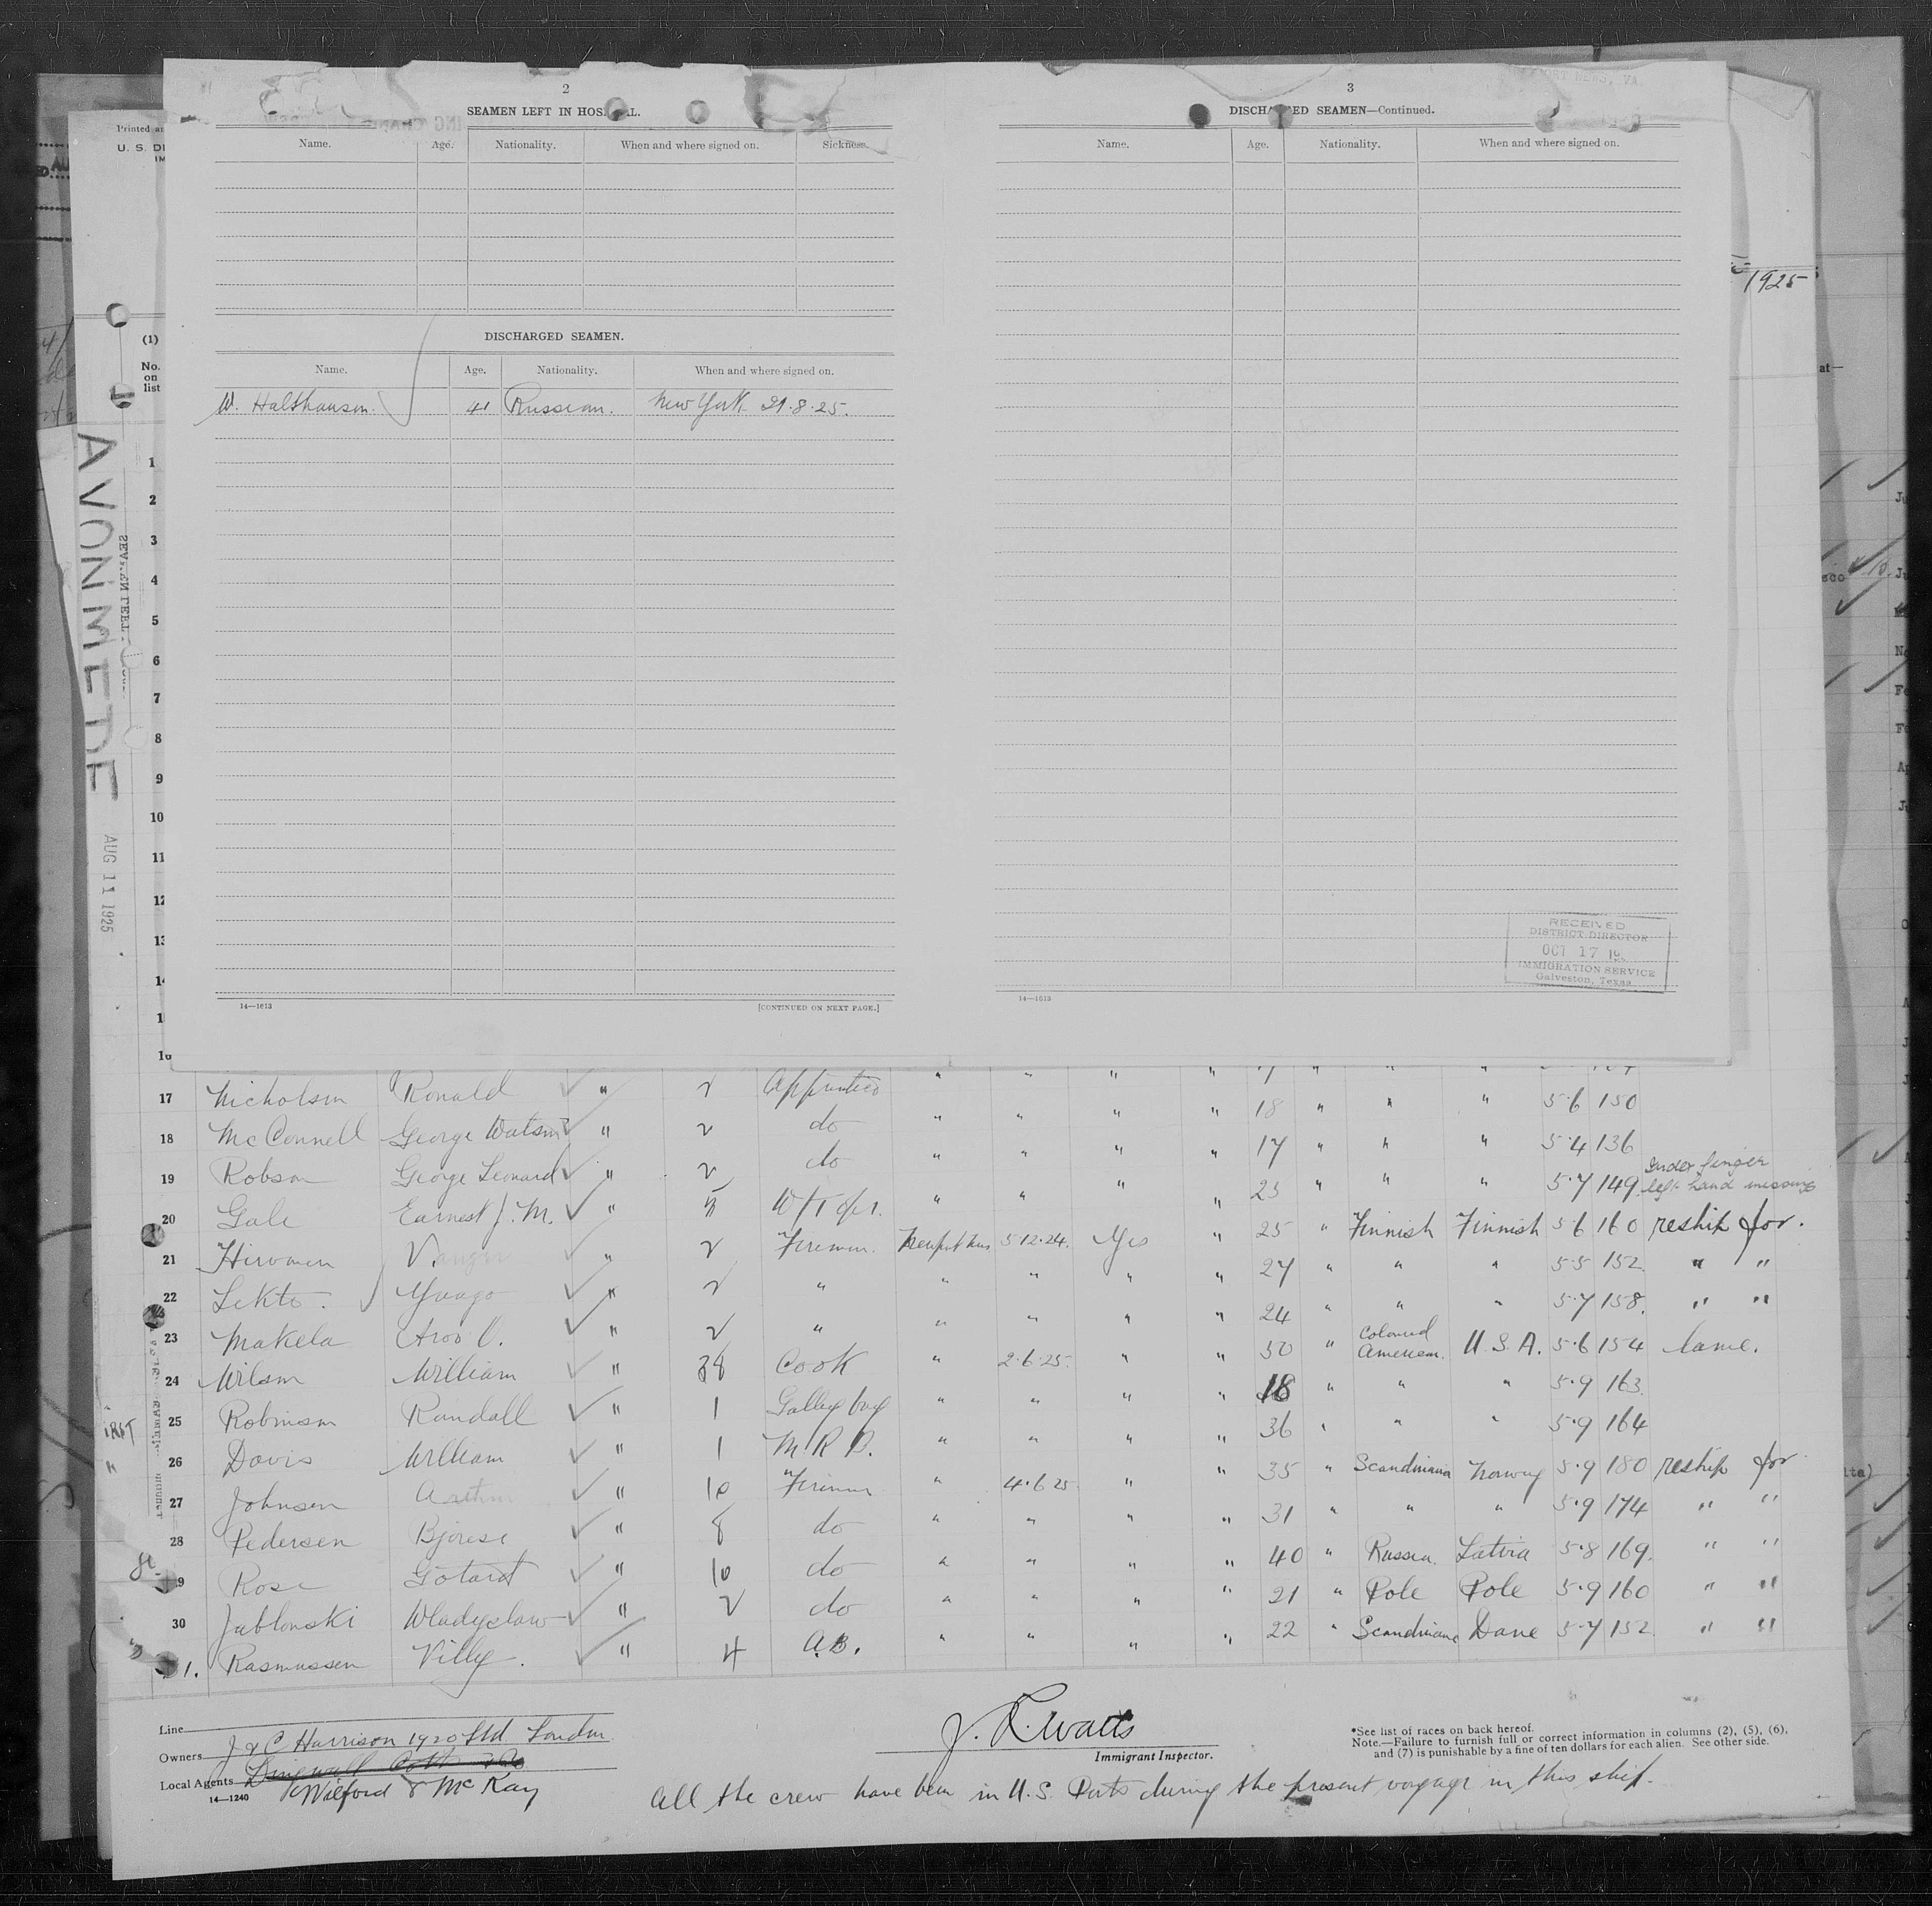 2
SEAMEN LEFT IN
Name. Age. Nationality. When and where signed on. Sickness.
DISCHARGED SEAMEN.
Name. Age. Nationality. When and where signed on.
W. Halthausen. 41 Russian. New York 21.8.25.
14—1613 [CONTINUED ON NEXT PAGE.]
3
DISCHARGED SEAMEN—Continued.
Name. Age. Nationality. When and where signed on.
RECEIVED
DISTRICT DIRECTOR
OCT 17
IMMIGRATION SERVICE
Galveston, Texas
14—1613
Printed
U. S.
1925
at—
(1)
No.
on
list
AVONMEDE
AUG 11 1925
1
2
3
4
5
6
7
8
9
10
11
12
13
14
17 Nicholson Ronald " 2 Apprentice " " " "
18 McConnell George Watson " 2 do " " " " 18 " " " 5.6 150
19 Robson George Leonard " 2 do " " " " 17 " " " 5.4 136
20 Gale Earnest J. M. " W/T opr. " " " " 23 " " " 5.7 149 finger left hand missing
21 Hirvonen " 2 Fireman. 5.12.24. Yes " 25 " Finnish Finnish 5.6 160 reship for.
22 Lekto. Yrago " 2 " " " " " 27 " " " 5.5 152 " "
23 Makela Arvo V. " 2 " " " " " 24 " " " 5.7 158. " "
24 Wilson William " 38 Cook " 2.6.25. " " 50 " Coloured American. U.S.A. 5.6 154 lame.
25 Robinson Randall " 1 Galley boy " " " " 18 " " " 5.9 163
26 Davis William " 1 M R B. " " " " 36 " " " 5.9 164
27 Johnsen Arthur " 10 Fireman " 4.6.25 " " 35 " Scandinavia Norway 5.9 180 reship for
28 Pedersen " 8 do " " " " 31 " " " 5.9 174 " "
29 Rose Gotard " 10 do " " " " 40 " Russia. Latvia 5.8 169. " "
30 Jablonski Wladyslaw " 2 do " " " " 21 " Pole Pole 5.9 160 " "
31. Rasmussen Villy. " 4 A.B. " " " " 22 " Scandinavia Dane 5.7 152. " "
Line
Owners J & C Harrison 1920 Ltd London
Local Agents
Wilford & McKay
14—1240
J. R. Watts
Immigrant Inspector.
*See list of races on back hereof.
Note.—Failure to furnish full or correct information in columns (2), (5), (6),
and (7) is punishable by a fine of ten dollars for each alien. See other side.
All the crew have been in U.S. Ports during the present voyage in this ship.